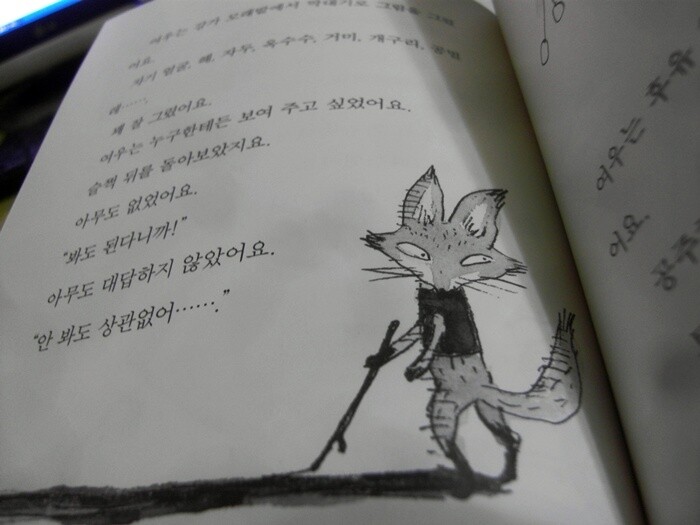 여우는 강가 모래밭에서 막대기로 그림을 그렸
어요.
자기 얼굴, 해, 자두, 옥수수, 거미, 개구리, 공벌
레…….
꽤 잘 그렸어요.
여우는 누구한테든 보여 주고 싶었어요.
슬쩍 뒤를 돌아보았지요.
아무도 없었어요.
“봐도 된다니까!”
아무도 대답하지 않았어요.
“안 봐도 상관없어…….”
여우는 후유
어요.
공주